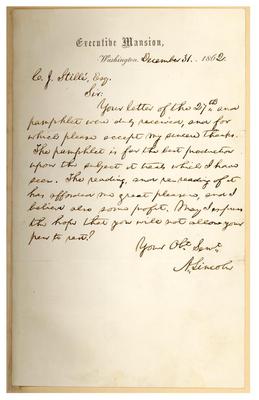 Executive Mansion,
Washington, December 31, 1862.
C. J. Stillé, Esq.
Sir:
Your letter of the 27th and
pamphlet were duly received, and for
which please accept my sincere thanks.
The pamphlet is far the best production
upon the subject it treats which I have
seen. The reading, and re-reading of it
has afforded me great pleasure, and I
believe also some profit. May I express
the hope that you will not allow your
pen to rest?
Your Obt. Servt.
A. Lincoln